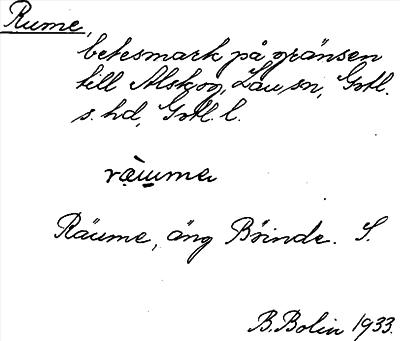 Rume,
betesmark på gränsen
till Alskog, Lau sn, Gotl.
s. hd, Gotl. l.
räume
Räume, äng Börinde. S.
B. Bolin 1933.